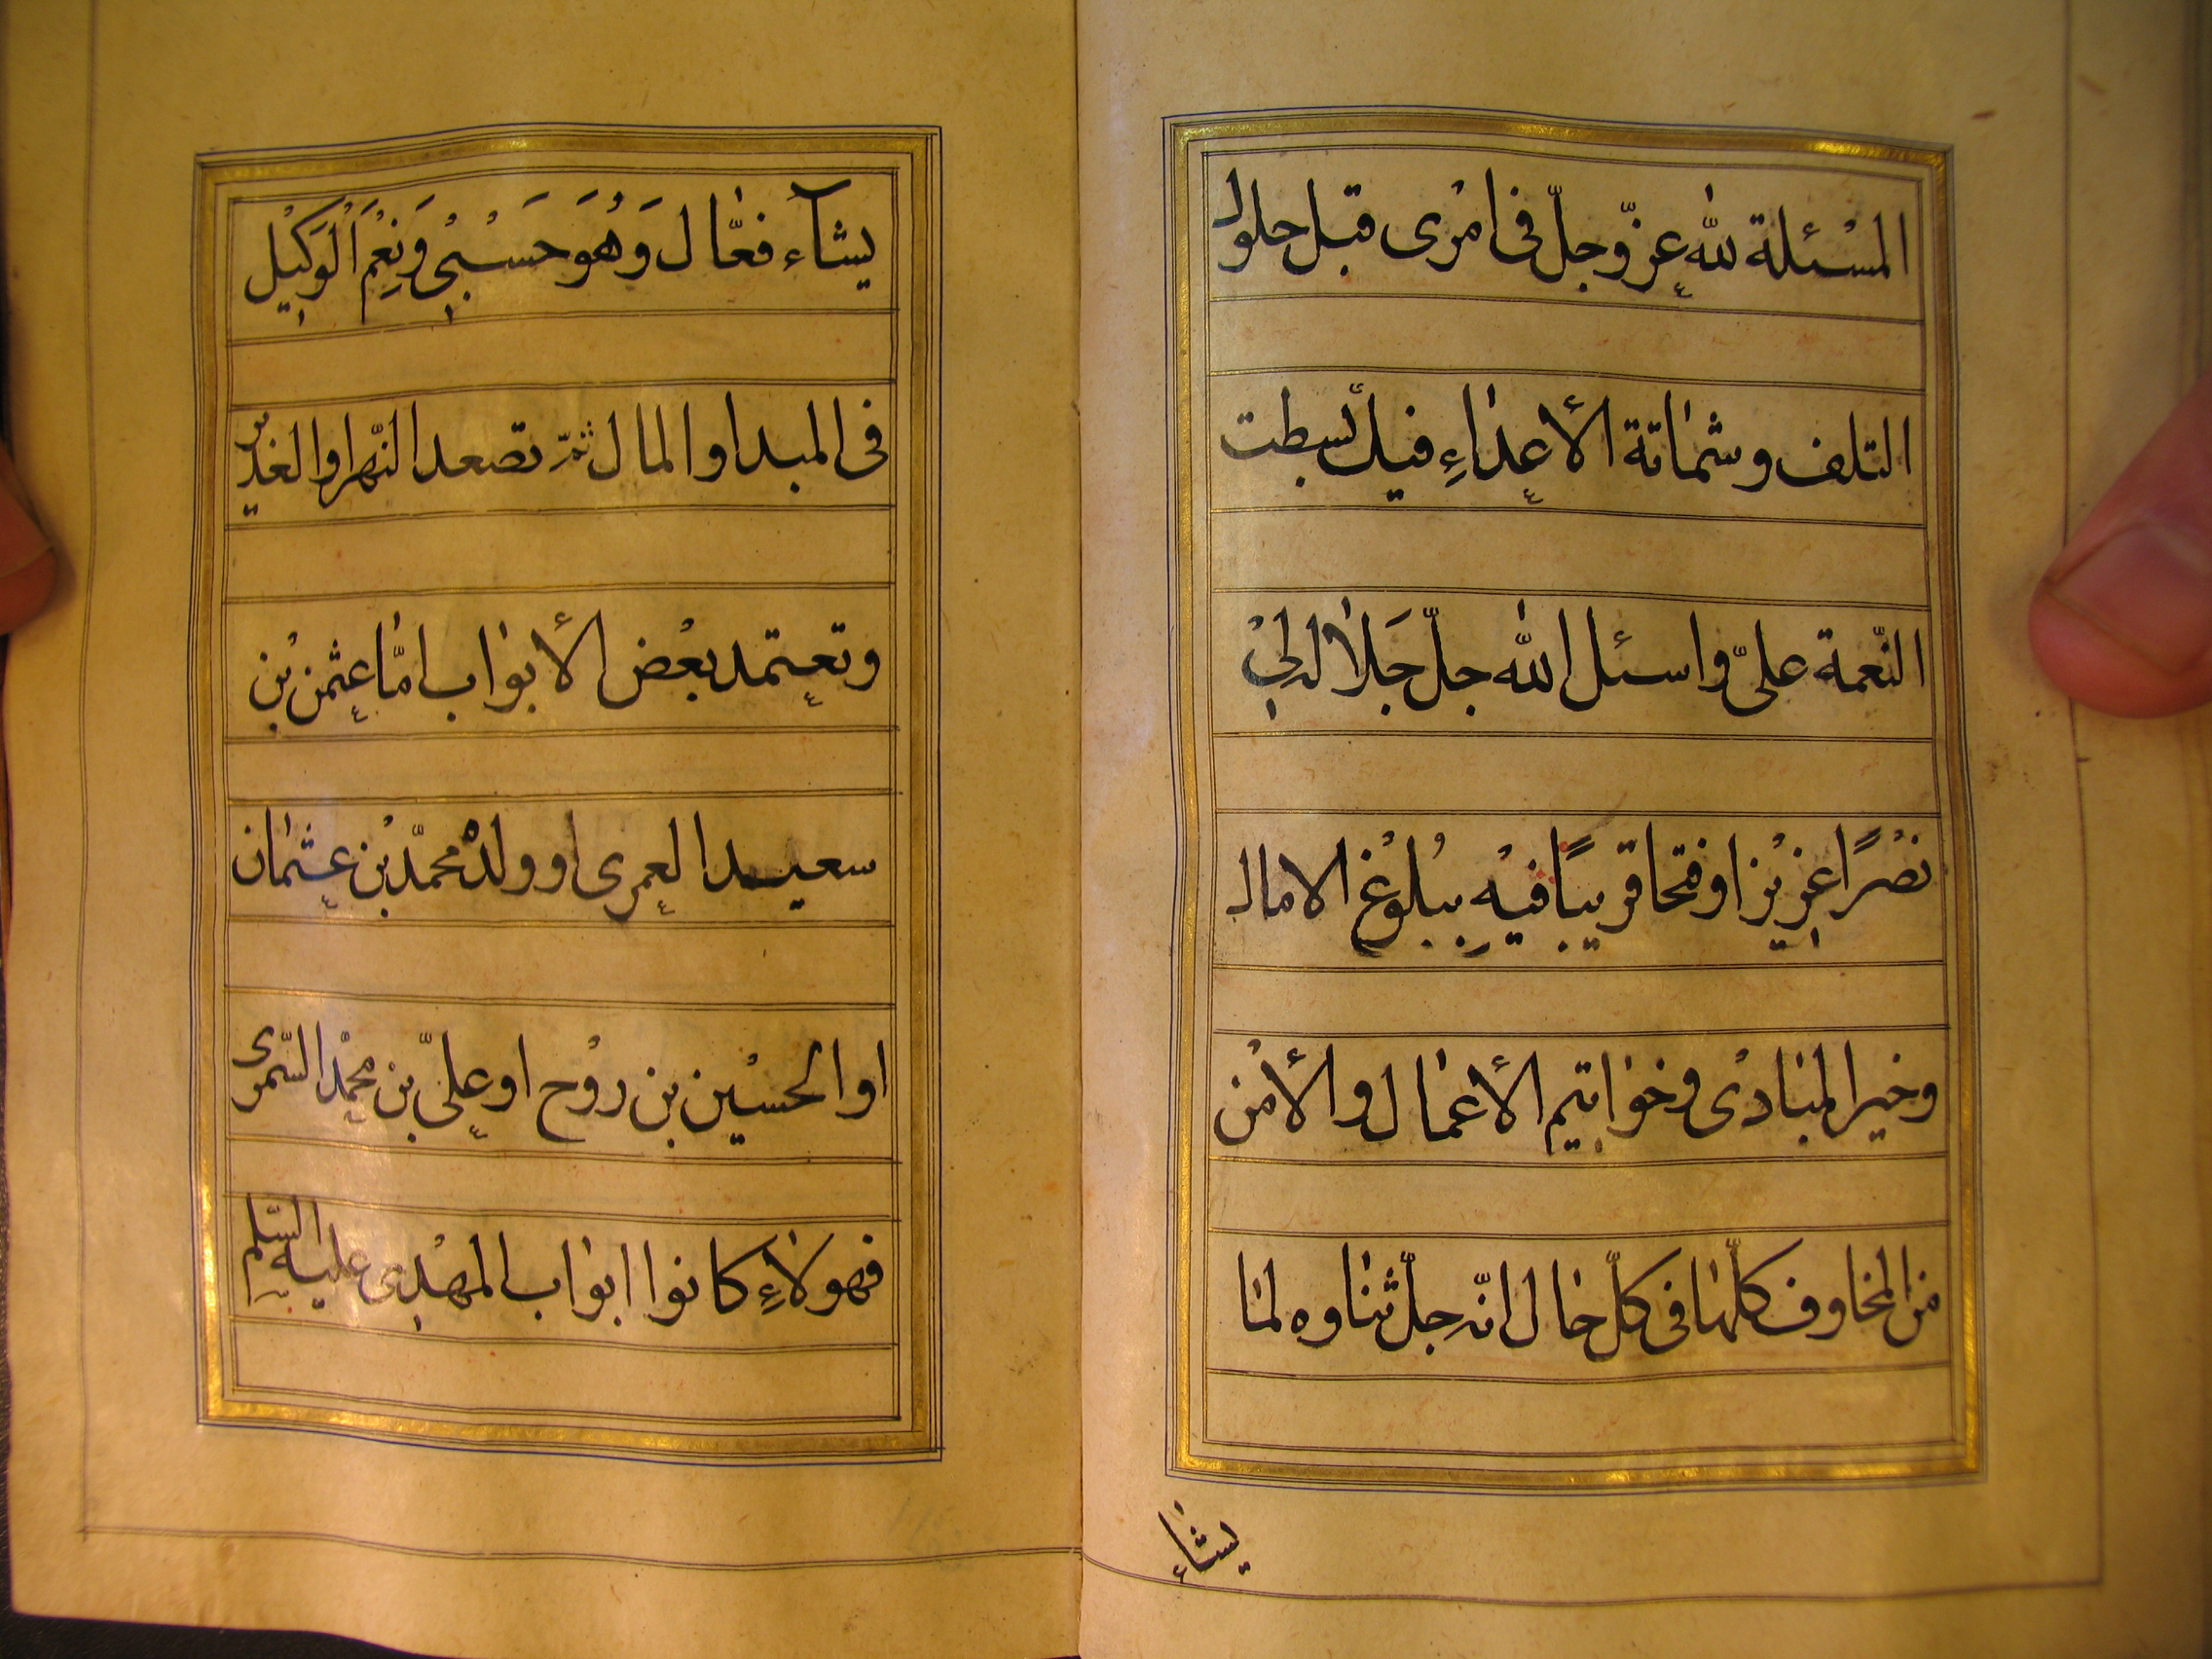 المسْئلة لله عزّ وجلّ فى امْرى قبل حلول
التلف وشماتة الأعداءِ فبك بسطت
النّعمة علىّ واسئل الله جلّ جَلاله لىْ
نصْرًا عزيْزا وفتحا قريبًا فيْهِ ببُلوْغ الامال
وخير المبادى وخواتيم الأعمال والأمْن
من المخاوف كلّها فى كلّ حال انّه جلّ ثناوه لما
يشاءِ
يشآء فعّال وَهُوَ حَسْبِىْ وَنِعْمَ الْوَكِيْل
فى المبدا والمال ثمّ تصعد النّهر او الغدير
وتعتمد بعْض الأبواب امّا عثمن بْن
سعيد العمرى او ولدهْ محمّد بْن عثمان
او الحسيْن بن روْح او علىّ بن محمّد السّمرى
فهولاءِ كانوا ابواب المهْدى عليه السّلم